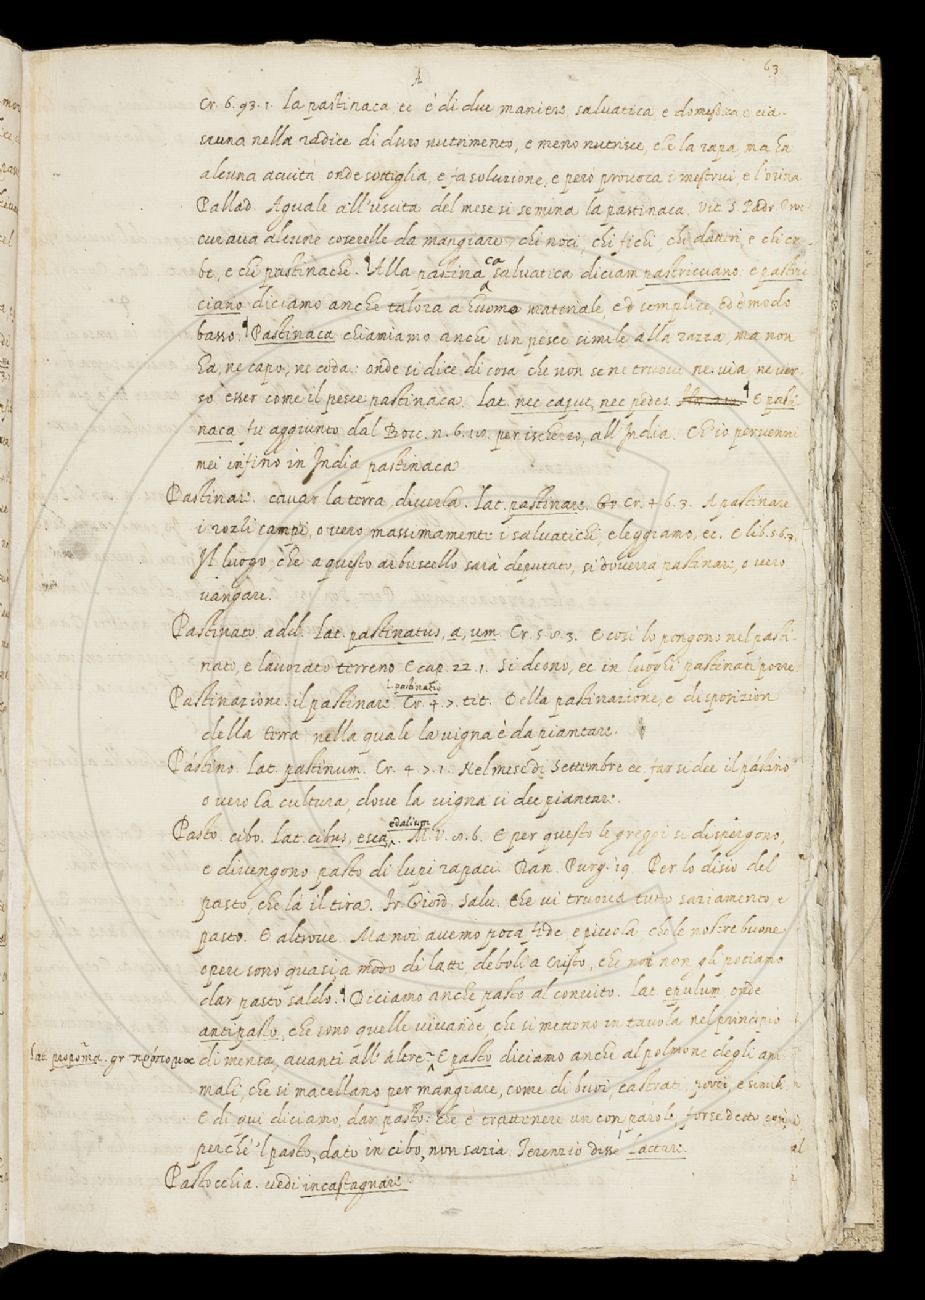 A
63
Cr. 6. 93. 1. la pastinaca, ec è di due maniere, salvatica e domestica, e cia-
scuna nella radice di duro nutrimento, e meno nutrisce, che la rapa, ma ha
alcuna acuità onde sottiglia, e fa soluzione, e però provoca i mestrui, e l'orina
Pallad. Aguale all'uscita del mese si semina la pastinaca. Vit. S. Padr. Pro-
curava alcune coserelle da mangiare, chi noci, chi fichi, chi datteri, e chi er-
be, e chi pastinache. Alla pastinaca salvatica diciam pastricciano. e pastric-
ciano diciamo anche talora a huomo materiale, e semplice, ed è modo
basso. Pastinaca chiamiamo anche un pesce simile alla razza, ma non
ha, ne capo, ne coda: onde si dice di cosa che non se ne truovi ne via, ne ver-
so esser come il pesce pastinaca. Lat. nec caput, nec pedes. E pasti-
naca fu aggiunto dal Bocc. n. 6. 10. per ischerzo, all'India. Ch'io pervenni
mei infino in India pastinaca
Pastinare. cavar la terra, diverla. Lat. pastinare. Cr. 4. 6. 3. A pastinare
i rozzi campi, o vero massimamente i salvatichi, eleggiamo, ec. E lib. 5. 6. 3.
Il luogo, che a questo arbuscello sarà deputato, si dovrrà pastinare, o vero
vangare.
Pastinato. add. Lat. pastinatus, a, um. Cr. 5. 8. 3. E così lo pongono nel pasti-
nato, e lavorato terreno E cap. 22. 1. Si deono, ec in luoghi pastinati porre
Pastinazione. il pastinare. l. pastinatio Cr. 4. 7. tit. Della pastinazione, e disposizion
della terra nella quale la vigna è da piantare.
Pástino. Lat. pastinum. Cr. 4. 7. 1. Nel mese di Settembre ec. far si dee il pástino
o vero la cultura, dove la vigna si dee piantare.
Pasto. cibo. Lat. cibus, esca, edulium. M. V. 8. 6. E per questo le greggi si dispergono,
e divengono pasto di lupi rapaci. Dan. Purg. 19. Per lo disio del
pasto, che là il tira. Fr. Giord. Salv. Che vi truova tutto saziamento, e
pasto. E altrove. Ma noi avemo poca fede e piccola che le nostre buone
opere sono quasi, a modo di latte, deboli a Cristo, che noi non gli potiamo
dar pasto saldo. Diciamo anche pasto al convito. lat. epulum onde
antipasto, che sono quelle vivande, che si mettono in tavola nel principio
lat. propoma. gr. πρόπομα di mensa, avanti all'altre. E pasto diciamo anche al polmone degli ani-
mali, che si macellano per mangiare, come di buoi, castrati, porci, e simili.
E di qui diciamo, dar pasto: che è trattenere un con parole, forse detto così,
perchè 'l pasto, dato in cibo, non sazia. Terenzio disse Lactare.
Pastocchia. vedi incastagnare.